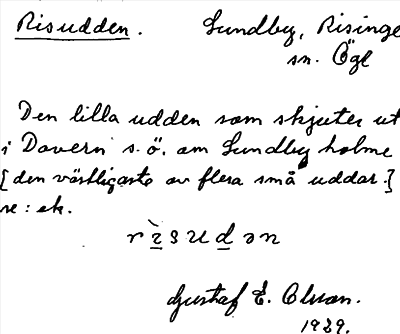 Risudden. Lundby, Risinge
sn. Ögl
Den lilla udden som skjuter ut
i Dovern s.ö. om Lundby holme
[den västligaste av flera små uddar.]
se: ek.
Gustaf E. Olsson.
1929.